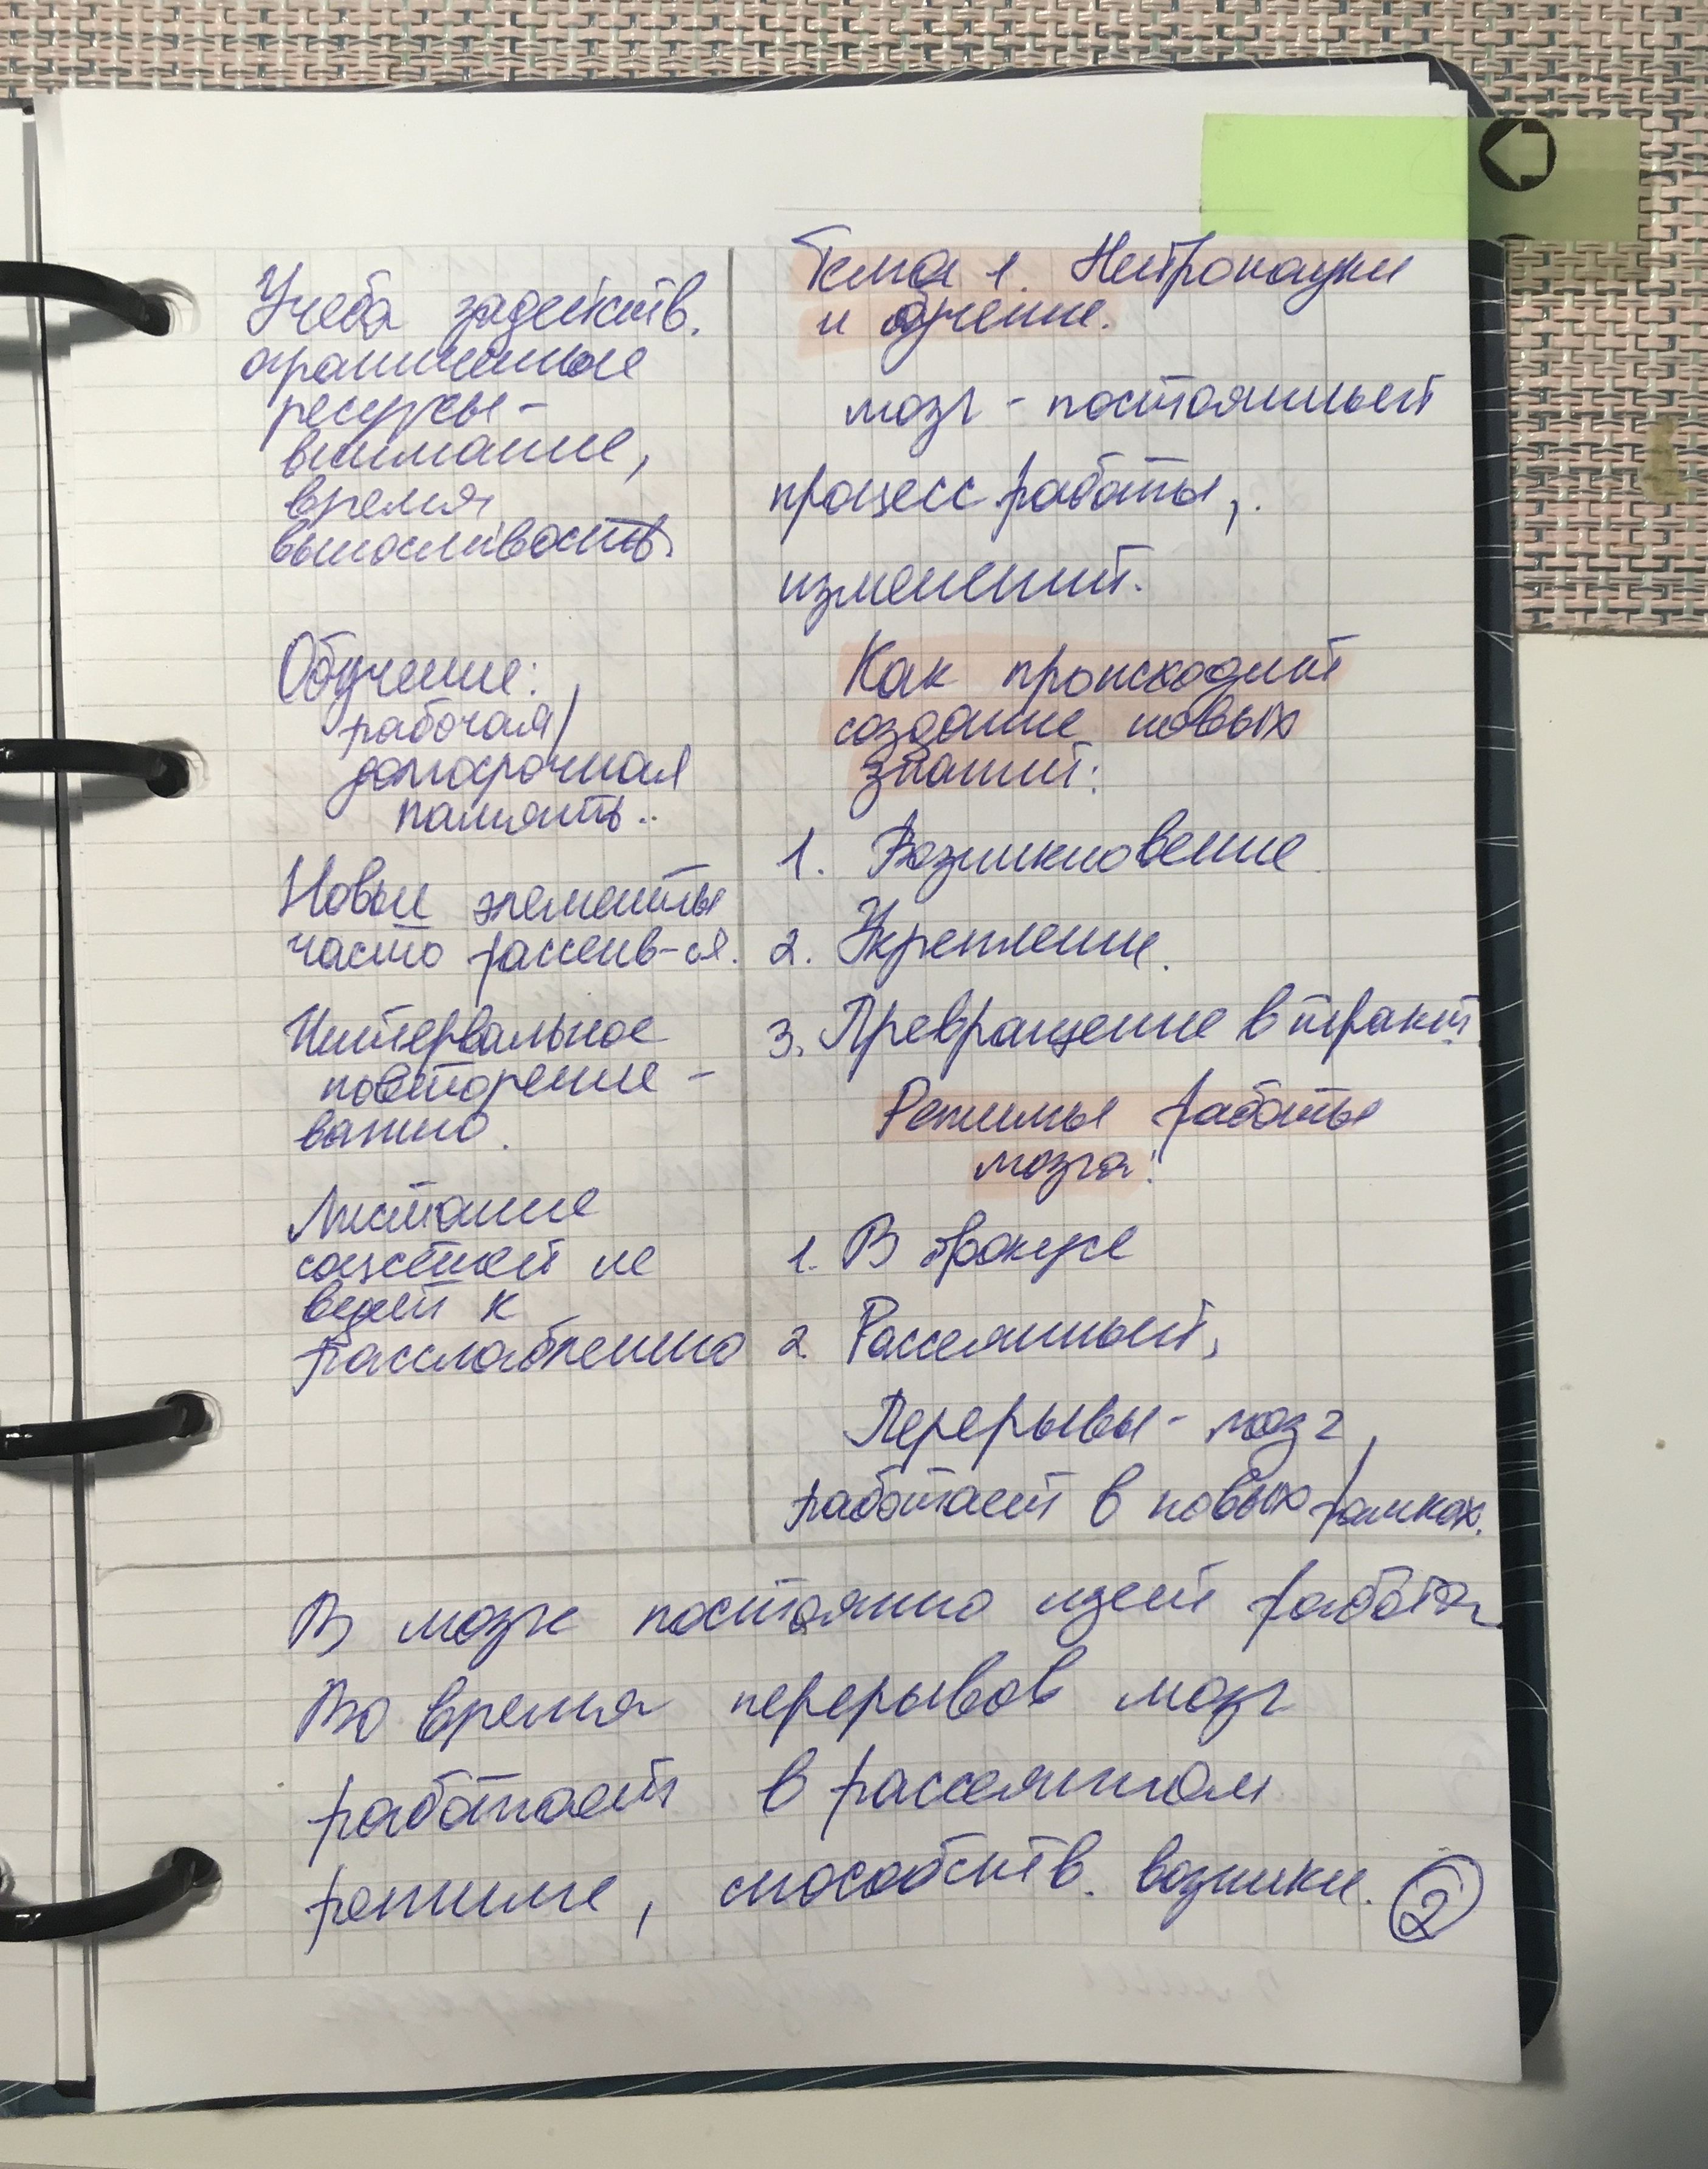 Учеба задейств.
ограниченные
ресурсы -
внимание,
время
выносливость
Обучение:
рабочая/
долгосрочная
память..
Новые элементы
часто рассеив-ся.
Интервальное
повторение -
важно.
Листание
соцсетей не
ведет к
расслаблению
Тема 1. Нейронауки
и обучение.
мозг - постоянный
процесс работы,
изменений.
Как происходит
создание новых
знаний:
1. Возникновение
2. Укрепление.
3. Превращение в тракт.
Режимы работы
мозга:
1. В фокусе
2. Рассеянный,
Перерывы - мозг
работает в новых рамках.
В мозге постоянно идет работа
Во время перерывов мозг
работает в рассеянном
режиме, способств. возникн.
2